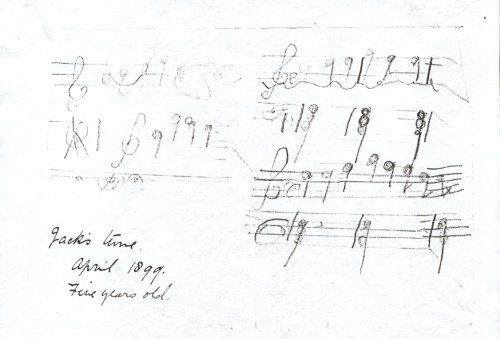 Jack's tune.
April 1899.
Five years old.